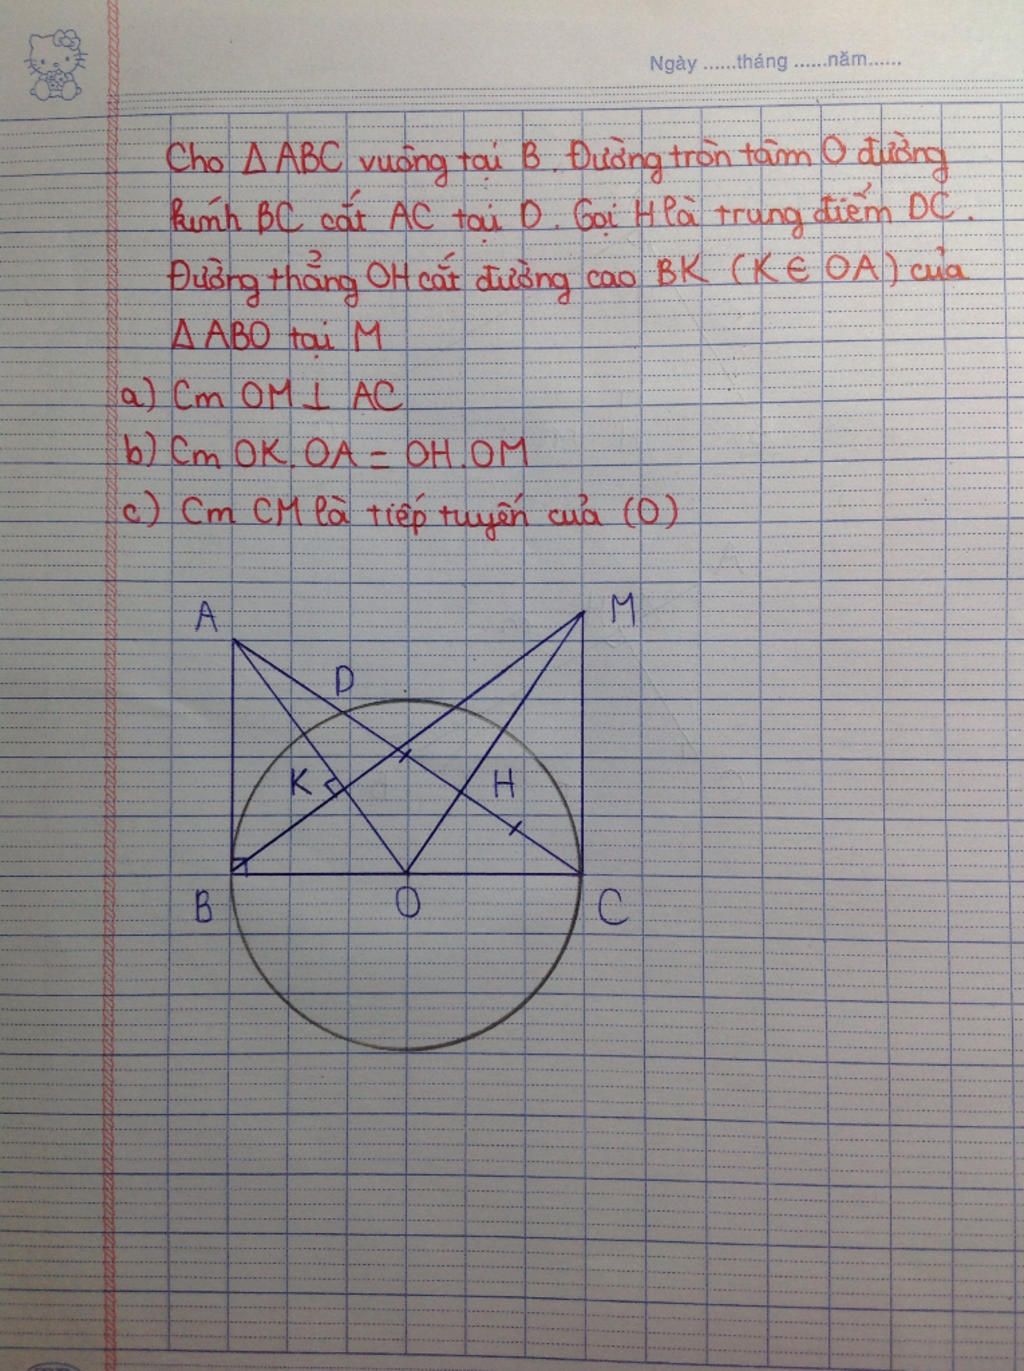 Ngày ......tháng ......năm......
Cho Δ ABC vuông tại B. Đường tròn tâm O đường
kính BC cắt AC tại D. Gọi H là trung điểm DC.
Đường thẳng OH cắt đường cao BK (K ∈ OA) của
Δ ABO tại M
a) Cm OM ⊥ AC
b) Cm OK.OA = OH.OM
c) Cm CM là tiếp tuyến của (O)
A
M
D
K
H
B
O
C